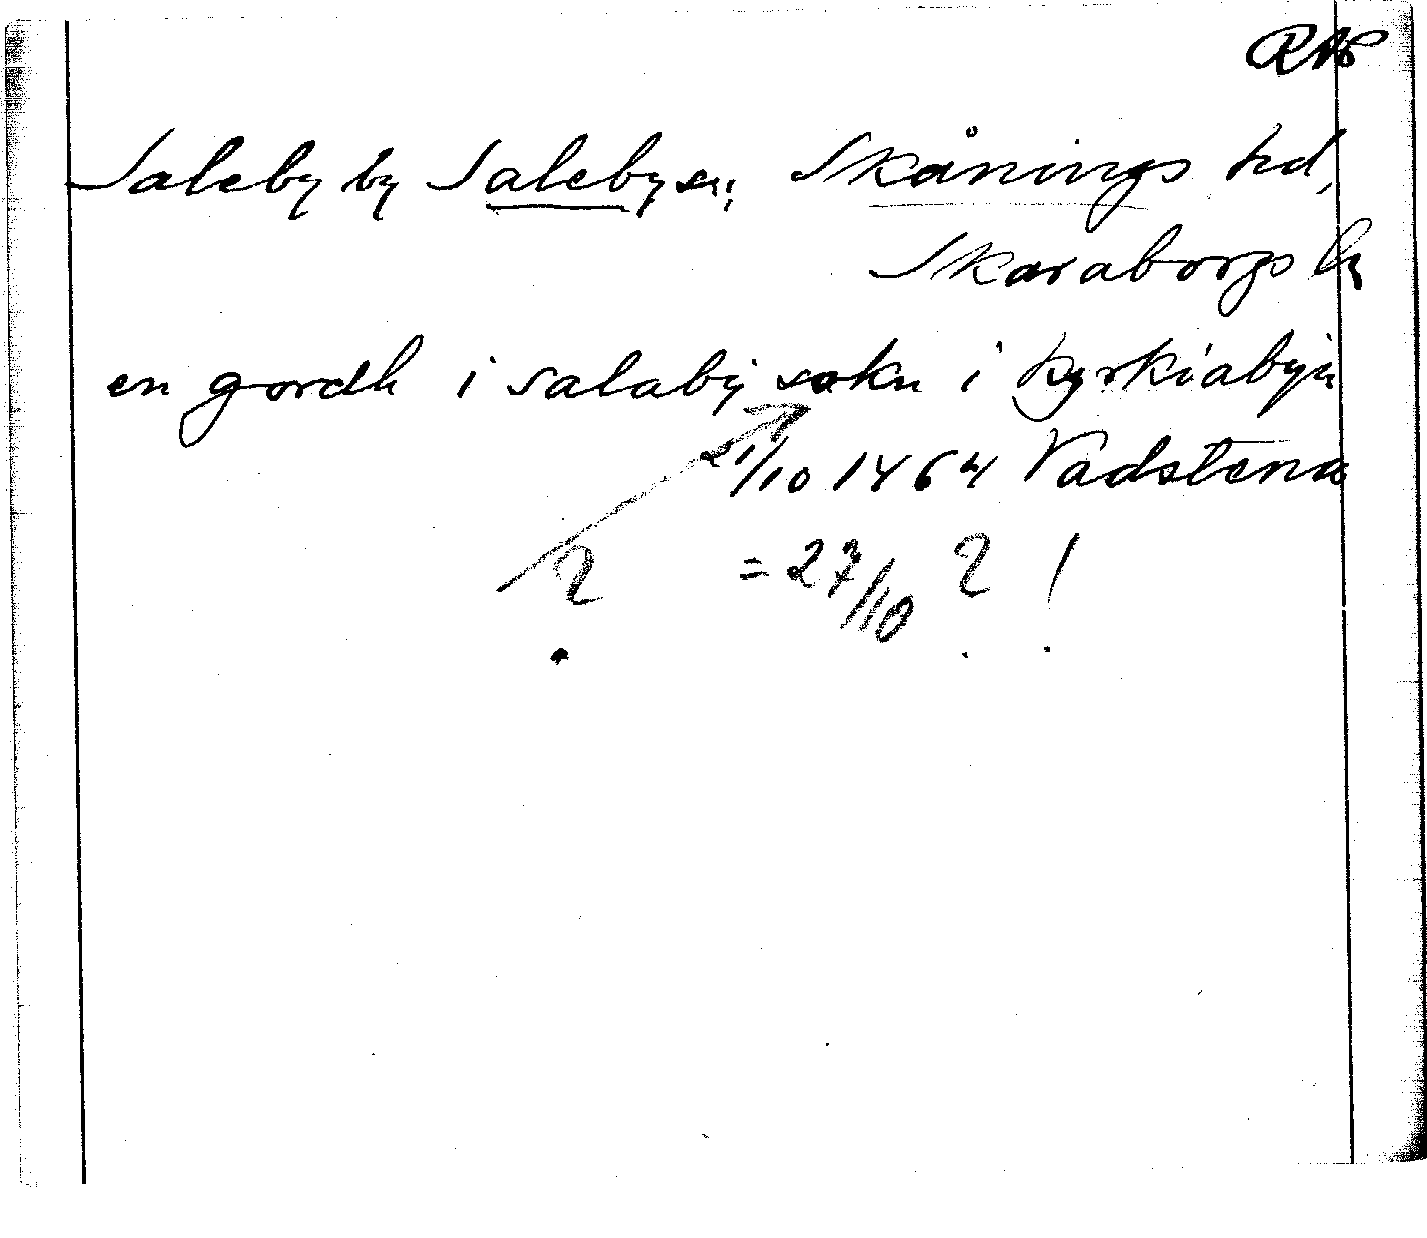 RAP
Saleby by Saleby sn; Skånings hd,
Skaraborgs l
en gordh i salaby sokn i kyrkiabyn
21/10 1464 Vadstena
? = 27/10 ? !